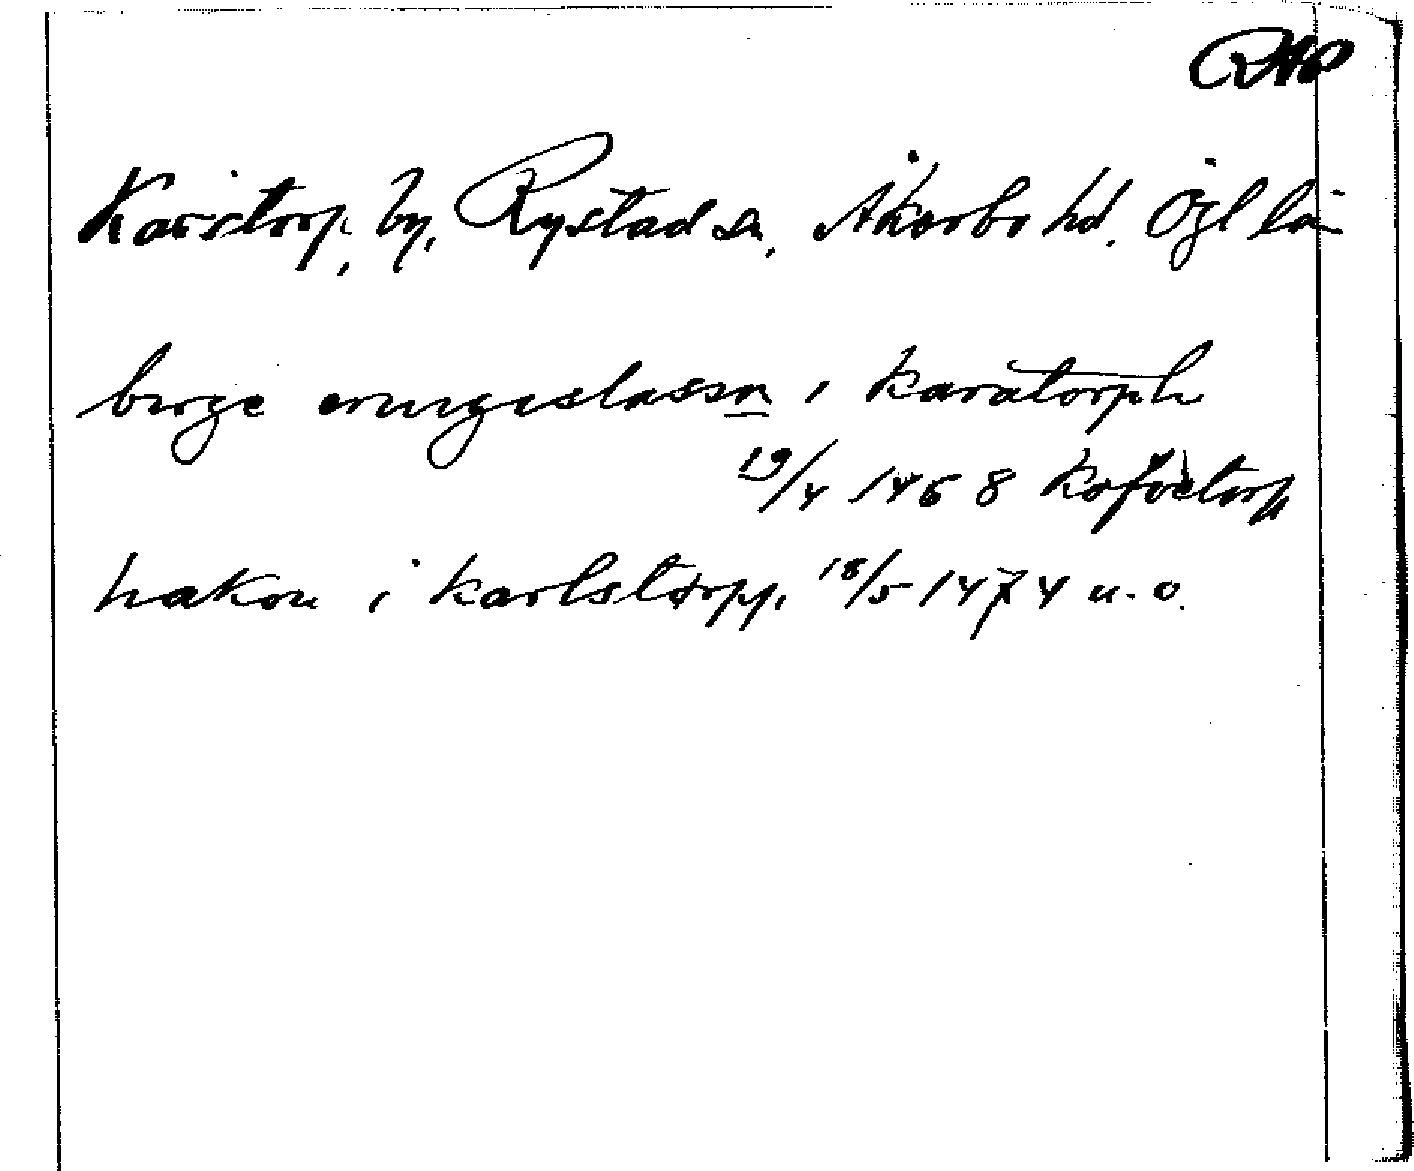 RAP
Karstorp, by, Rystad sn, Åkerbo hd. Ögl län
birge erengislasson i karatorph
19/4 1468 Kofvetorp
hakon i karlstorpp, 18/5 1474 u. o.